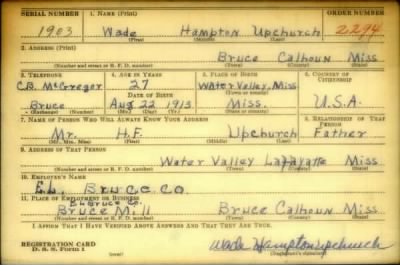 SERIAL NUMBER 1. NAME (Print) ORDER NUMBER
1903 Wade Hampton Upchurch 2294
(First) (Middle) (Last)
2. ADDRESS (Print)
Bruce Calhoun Miss
(Number and street or R. F. D. number) (Town) (County) (State)
3. TELEPHONE 4. AGE IN YEARS 5. PLACE OF BIRTH 6. COUNTRY OF CITIZENSHIP
C.B. McGregor 27 Water Valley, Miss
DATE OF BIRTH (Town or county)
Bruce Aug 22 1913 Miss. U.S.A.
(Exchange) (Number) (Mo.) (Day) (Yr.) (State or country)
7. NAME OF PERSON WHO WILL ALWAYS KNOW YOUR ADDRESS 8. RELATIONSHIP OF THAT PERSON
Mr. H.F. Upchurch Father
(Mr., Mrs., Miss) (First) (Middle) (Last)
9. ADDRESS OF THAT PERSON
Water Valley Lafayette Miss
(Number and street or R. F. D. number) (Town) (County) (State)
10. EMPLOYER'S NAME
E.L. Bruce Co.
11. PLACE OF EMPLOYMENT OR BUSINESS
E.L. Bruce Co.
Bruce Mill Bruce Calhoun Miss
(Number and street or R. F. D. number) (Town) (County) (State)
I AFFIRM THAT I HAVE VERIFIED ABOVE ANSWERS AND THAT THEY ARE TRUE.
REGISTRATION CARD
D. S. S. Form 1 (over) Wade Hampton Upchurch
(Registrant's signature)